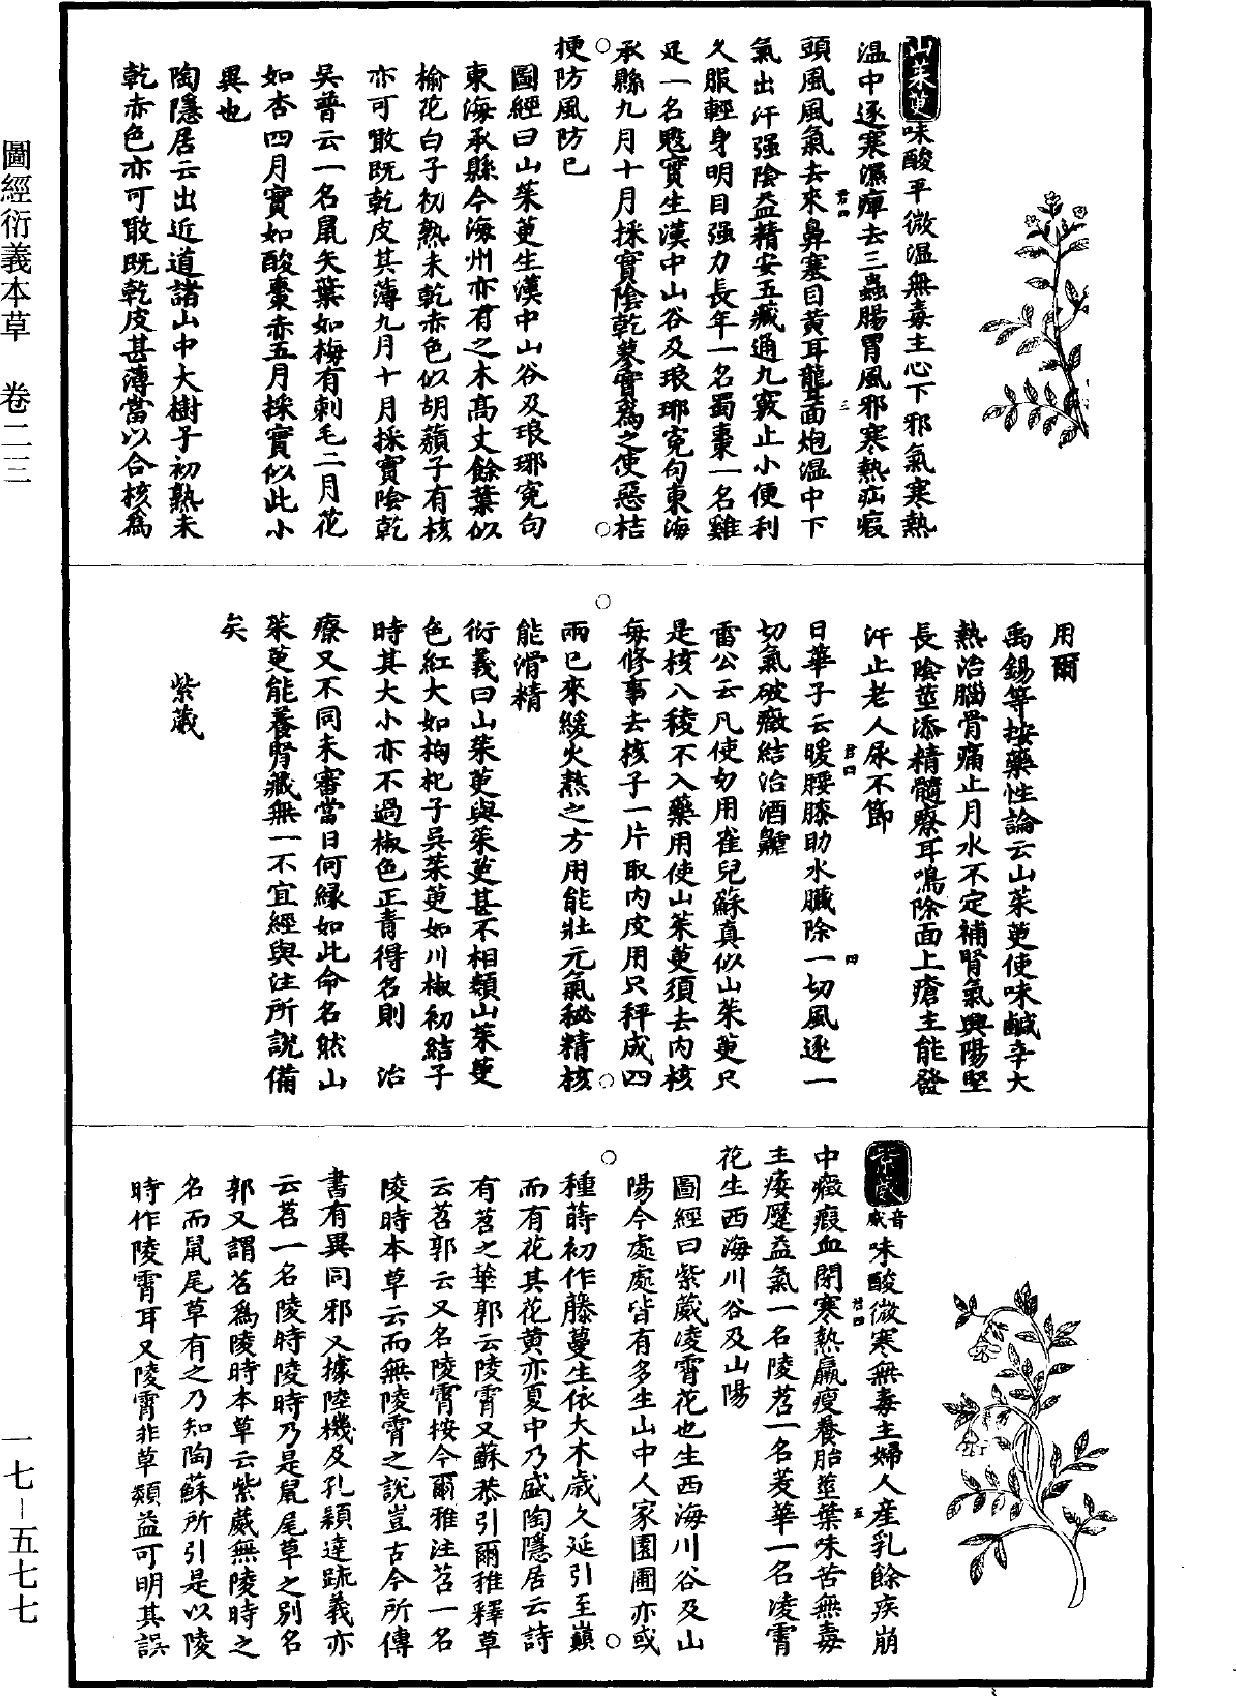 圖經衍義本草　卷二三
一七—五七七
山茱萸味酸平微溫無毒主心下邪氣寒熱
溫中逐寒濕痺去三蟲腸胃風邪寒熱疝瘕
頭風風氣去來鼻塞目黃耳聾面皰溫中下
氣出汗强陰益精安五臟通九竅止小便利
久服輕身明目强力長年一名蜀棗一名雞
足一名鬾實生漢中山谷及琅琊寃句東海
承縣九月十月採實陰乾蓼實爲之使惡桔
梗防風防已
圖經曰山茱萸生漢中山谷及琅琊寃句
東海承縣今海州亦有之木高丈餘葉似
榆花白子初熟未乾赤色似胡蘱子有核
亦可噉既乾皮甚薄九月十月採實陰乾
吳普云一名鼠矢葉如梅有刺毛二月花
如杏四月實如酸棗赤五月採實似此小
異也
陶隱居云出近道諸山中大樹子初熟未
乾赤色亦可噉既乾皮甚薄當以合核爲
用爾
禹錫等按藥性論云山茱萸使味鹹辛大
熱治腦骨痛止月水不定補腎氣興陽堅
長陰莖添精髓療耳鳴除面上瘡主能發
汗止老人尿不節
日華子云暖腰膝助水臟除一切風逐一
切氣破癥結治酒皶
雷公云凡使勿用雀兒蘇真似山茱萸只
是核八稜不入藥用使山茱萸須去内核
每修事去核子一片取肉皮用只秤成四
兩已來緩火熬之方用能壯元氣秘精核
能滑精
衍義曰山茱萸與茱萸甚不相類山茱萸
色紅大如枸杞子吳茱萸如川椒初結子
時其大小亦不過椒色正青得名則　治
療又不同未審當日何緣如此命名然山
茱萸能養腎臟無一不宜經與注所說備
矣
紫葳
紫葳音威味酸微寒無毒主婦人産乳餘疾崩
中癥瘕血閉寒熱羸瘦養胎莖葉味苦無毒
主痿蹷益氣一名陵苕一名茇華一名凌霄
花生西海川谷及山陽
圖經曰紫葳凌霄花也生西海川谷及山
陽今處處皆有多生山中人家園圃亦或
種蒔初作藤蔓生依大木歲久延引至巔
而有花其花黃赤夏中乃盛陶隱居云詩
有苕之華郭云陵霄又蘇恭引爾雅釋草
云苕郭云又名陵霄按今爾雅注苕一名
陵時本草云而無陵霄之說豈古今所傳
書有異同邪又據陸機及孔穎達疏義亦
云苕一名陵時陵時乃是鼠尾草之别名
郭又謂苕爲陵時本草云紫葳無陵時之
名而鼠尾草有之乃知陶蘇所引是以陵
時作陵霄耳又陵霄非草類益可明其誤